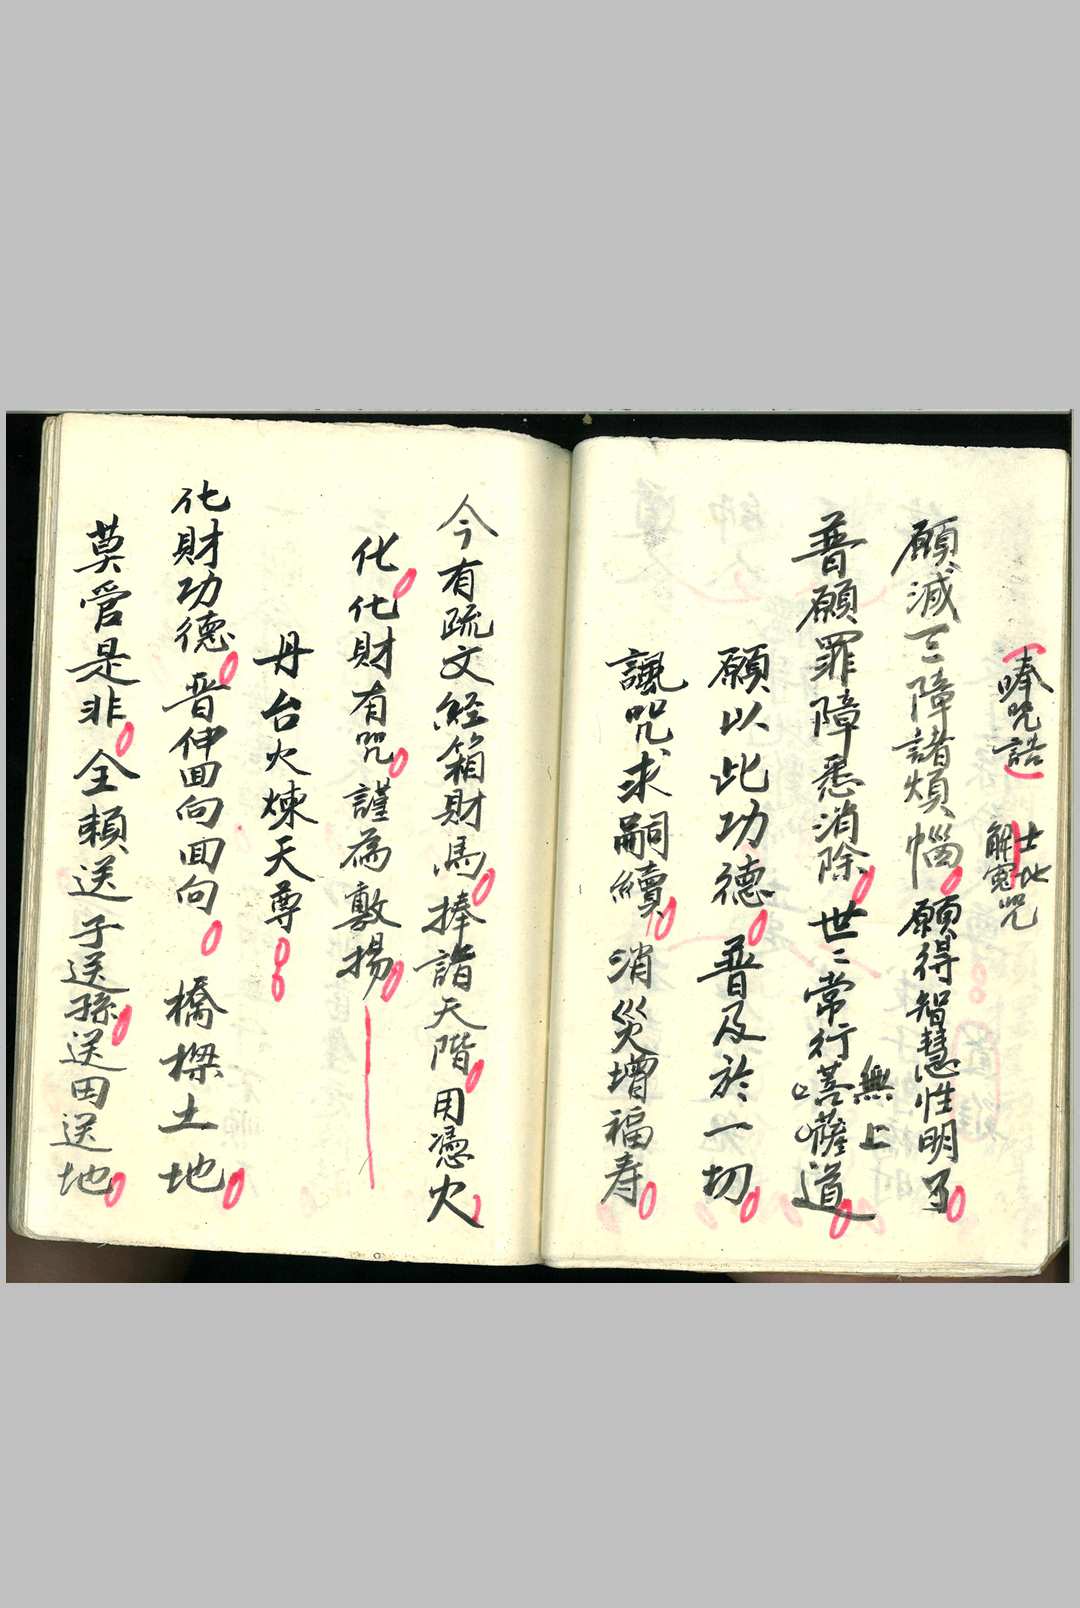 唪咒誥
土地
解冤咒
願減三障諸煩惱願得智慧性明了
普願罪障悉消除世二常行菩薩道
無上
願以此功德普及於一切
諷咒求嗣續消災增福寿
今有疏文経箱財馬捧詣天階用憑火
化化財有咒謹為敷揚
丹台火煉天尊
化財功德晋伸回向回向橋樑土地
莫管是非全頼送子送孫送田送地